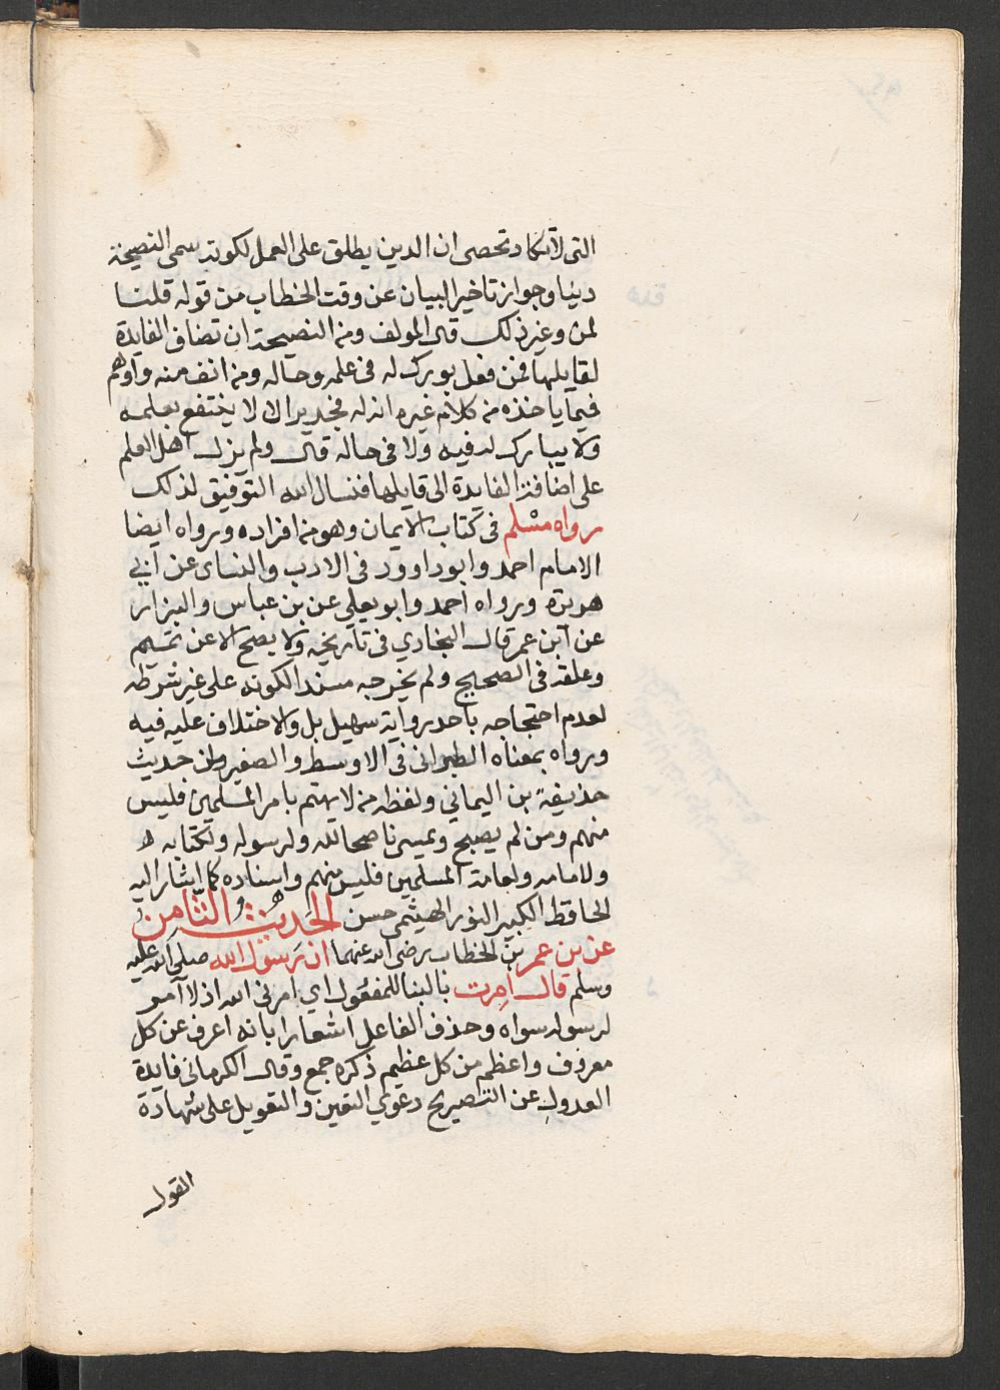 التى لا تكاد تحصى ان الدين يطلق على العمل لكونه سمى النصيحة
دينا وجواز تاخير البيان عن وقت الخطاب من قوله قلنا
لمن وغير ذلك قال المولف ومن النصيحة ان تضاف الفايدة
لقايلها فمن فعل بورك له فى علمه وحاله ومن انف منه واوهم
فيما ياخذه من كلام غيره انه له فجدير ان لا ينتفع بعلمه
ولا يبارك له فيه ولا فى حاله قال ولم يزل اهل العلم
على اضافة الفايدة الى قايلها فنسال الله التوفيق لذلك
رواه مسلم فى كتاب الايمان وهو من افراده ورواه ايضا
الامام احمد وابو داوود فى الادب والنساى عن ابي
هريرة ورواه احمد وابو يعلي عن بن عباس والبزار
عن ابن عمر قال البخاري فى تاريخه ولا يصح الا عن تميم
وعلقه فى الصحيح ولم يخرجه مسندا لكونه على غير شرطه
لعدم احتجاجه باحد رواية سهيل بل والاختلاف عليه فيه
ورواه بمعناه الطبرانى فى الاوسط والصغير من حديث
حذيفة بن اليماني ولفظه من لا يهتم بامر المسلمين فليس
منهم ومن لم يصبح ويمسى ناصحا لله ولرسوله ولكتابه
ولامامه ولعامة المسلمين فليس منهم واسناده كما اشار اليه
الحافظ الكبير النور الهيثمى حسن الحديث الثامن
عن بن عمر بن الخطاب رضى الله عنهما ان رسول الله صلى الله عليه
وسلم قال امرت بالبنا للمفعول اي امرنى الله اذ لا آمر
لرسوله سواه وحذف الفاعل اشعارا بانه اعرف عن كل
معروف واعظم من كل عظيم ذكره جمع وقال الكرمانى فايدة
العدول عن التصريح دعوي اليقين والتعويل على شهادة
القول